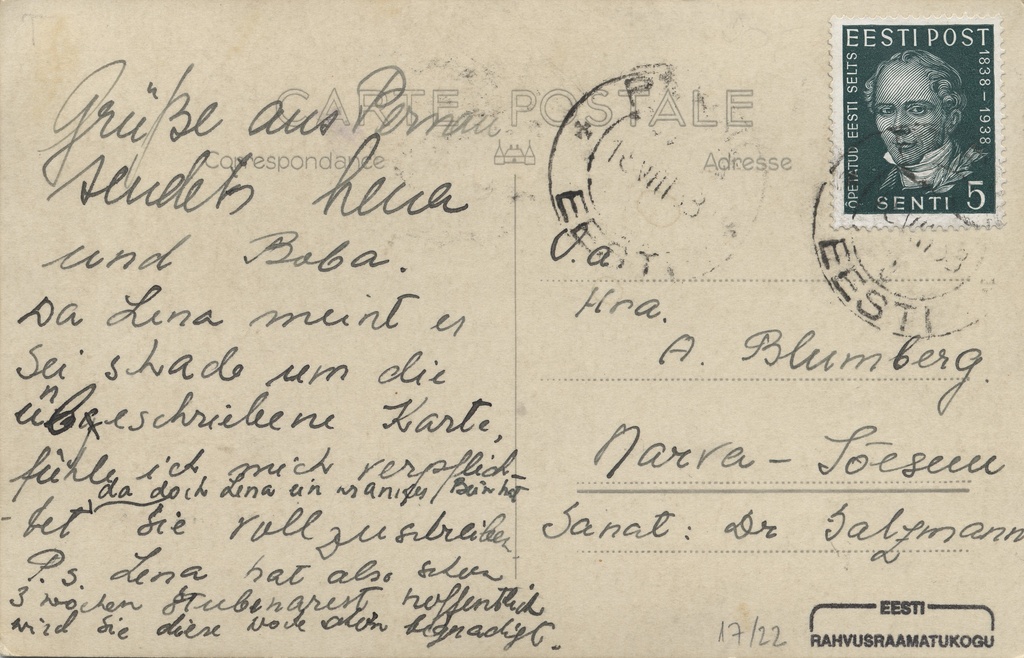 Grüße aus Pernau
sendets Lena
und Boba.
Da Lena meint es
sei schade um die
unbeschriebene Karte,
fühle ich mich verpflich-
da doch Lena ein
-tet sie vollzuschreiben
P.s. Lena hat also schon
3 wochen Stubenarest hoffentlich
wird sie diese woche schon begnadigt.
CARTE POSTALE
Correspondance
Adresse
EESTI
EESTI POST
1838-1938
ÕPETATUD EESTI SELTS
SENTI 5
EESTI
Hra.
A. Blumberg.
Narva - Jõesuu
Sanat: Dr Salzmann
17/22
EESTI
RAHVUSRAAMATUKOGU